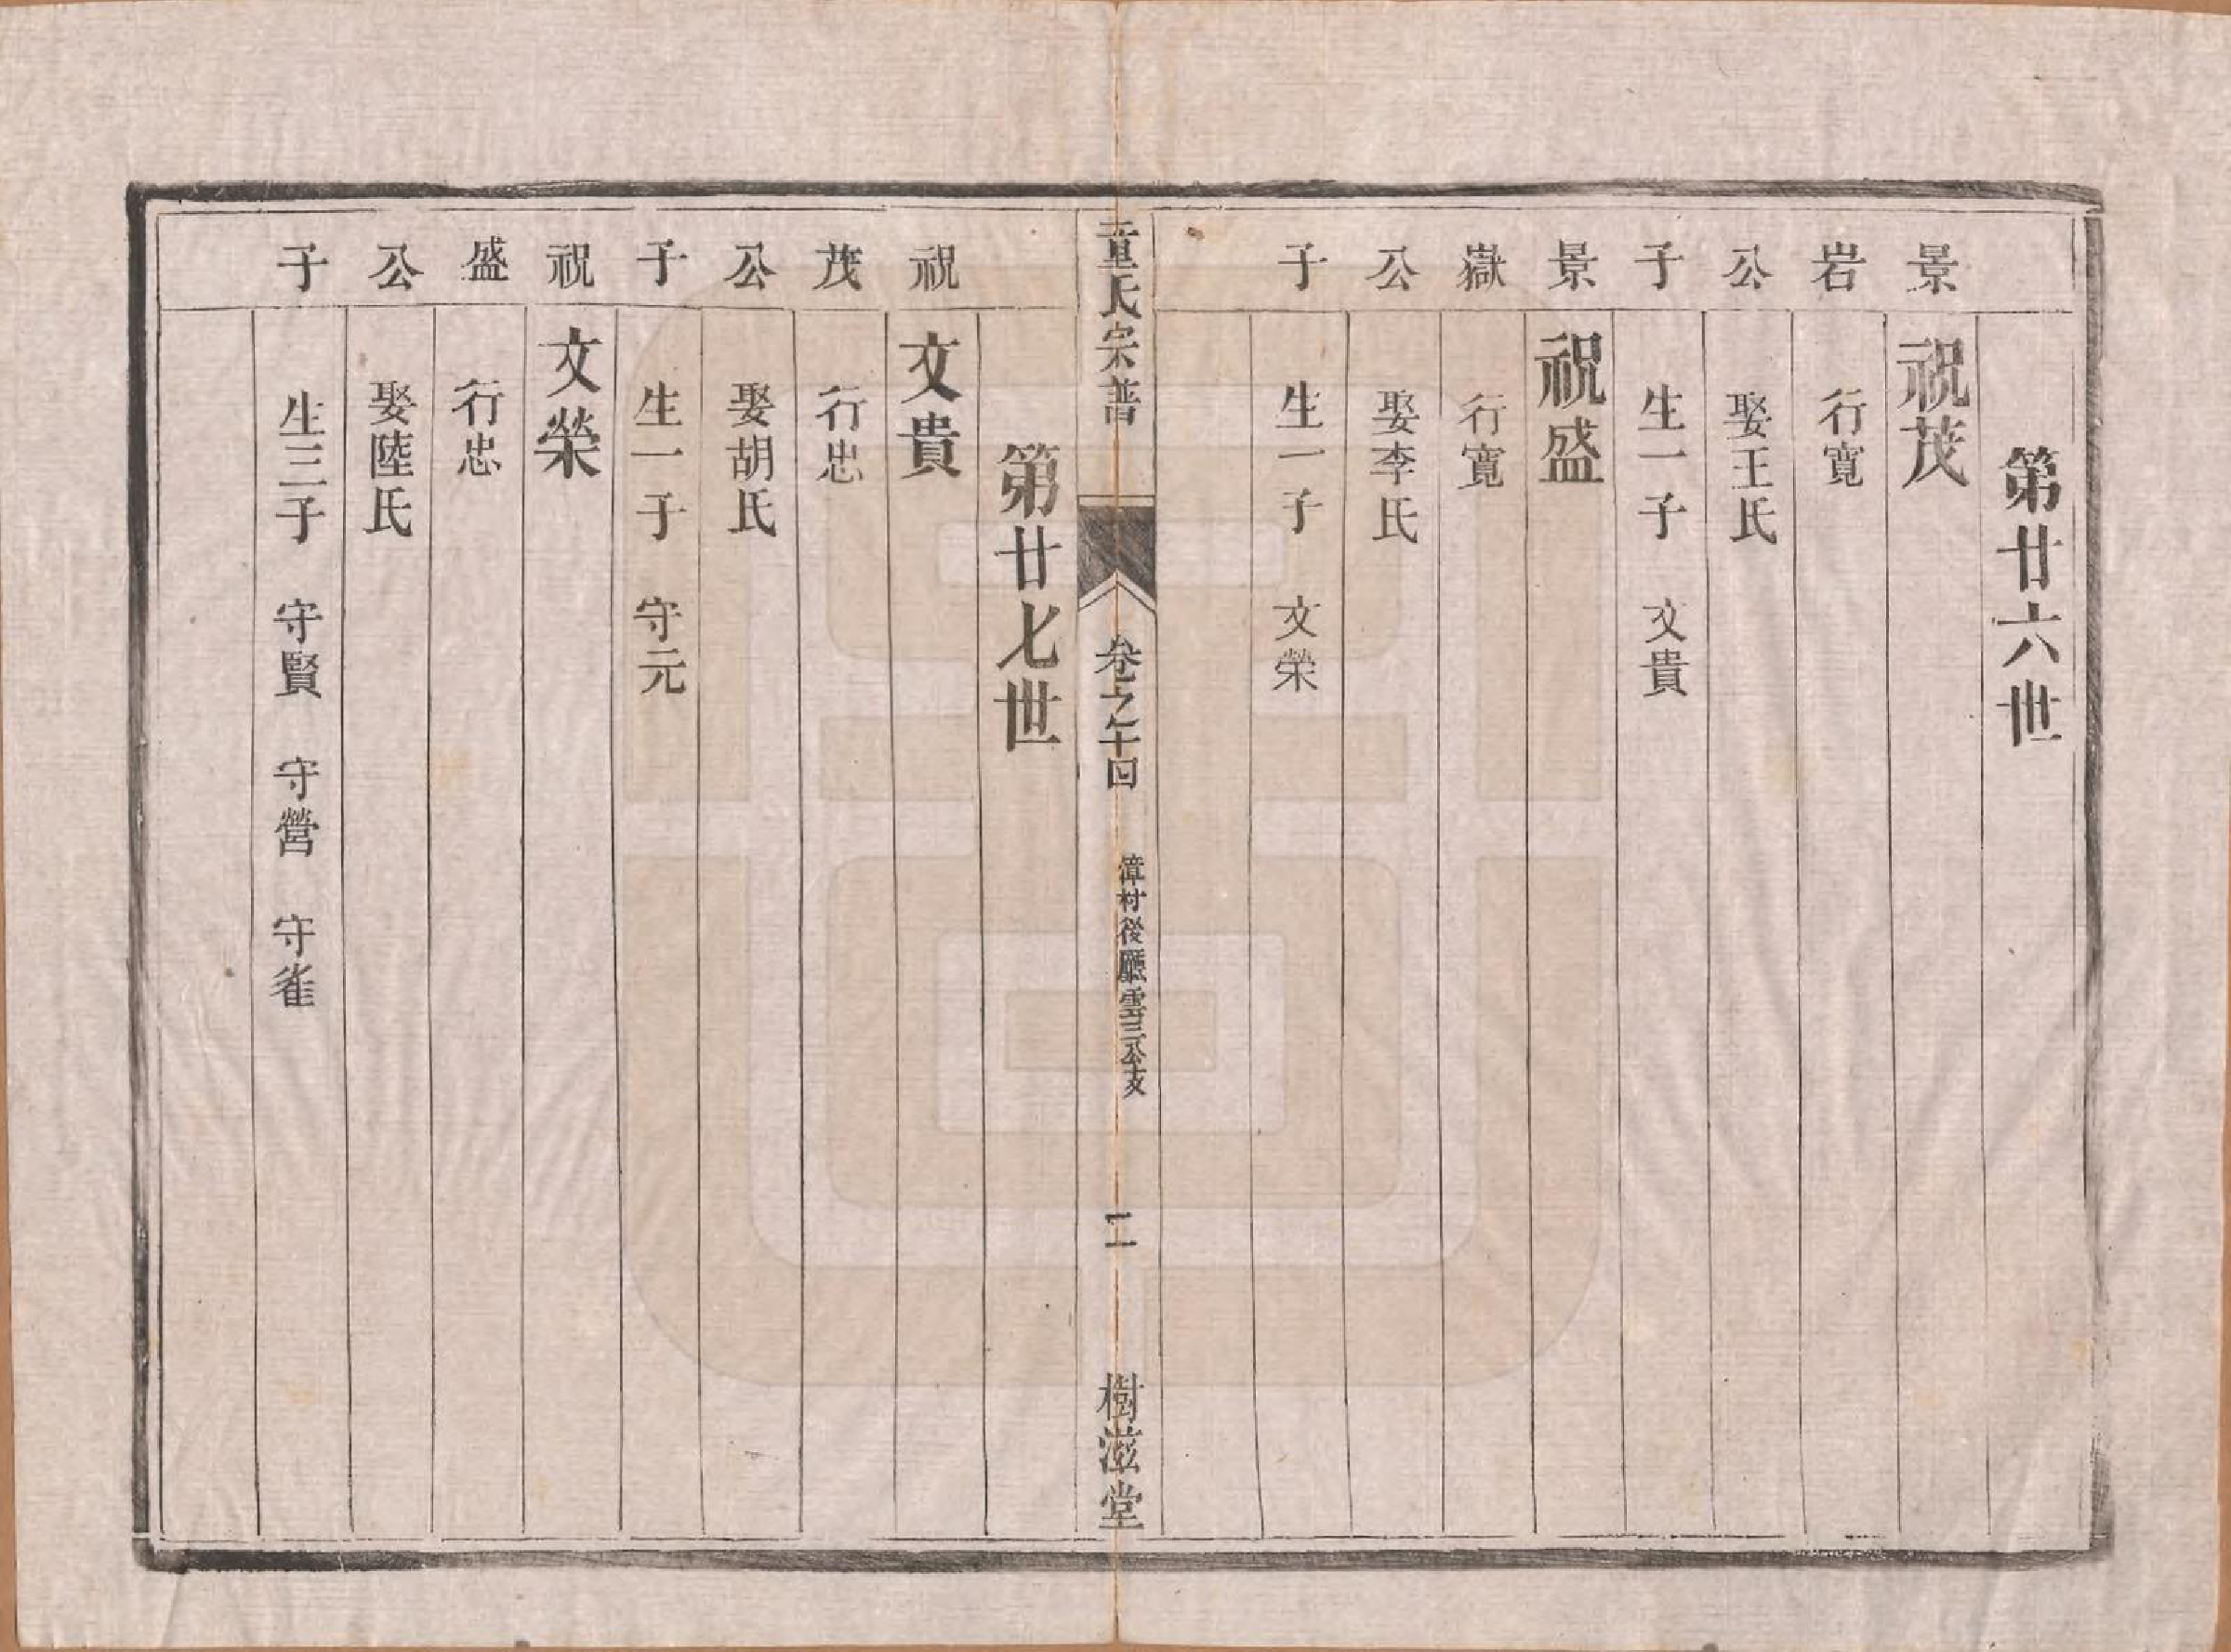 第廿六世
景 祝茂
岩 行寬
公 娶王氏
子 生一子 文貴
景 祝盛
嶽 行寬
公 娶李氏
子 生一子 文榮
童氏宗譜 卷之十四 漳村後廳雲三公支 二 樹滋堂
第廿七世
祝 文貴
茂 行忠
公 娶胡氏
子 生一子 守元
祝 文榮
盛 行忠
公 娶陸氏
子 生三子 守賢 守營 守雀